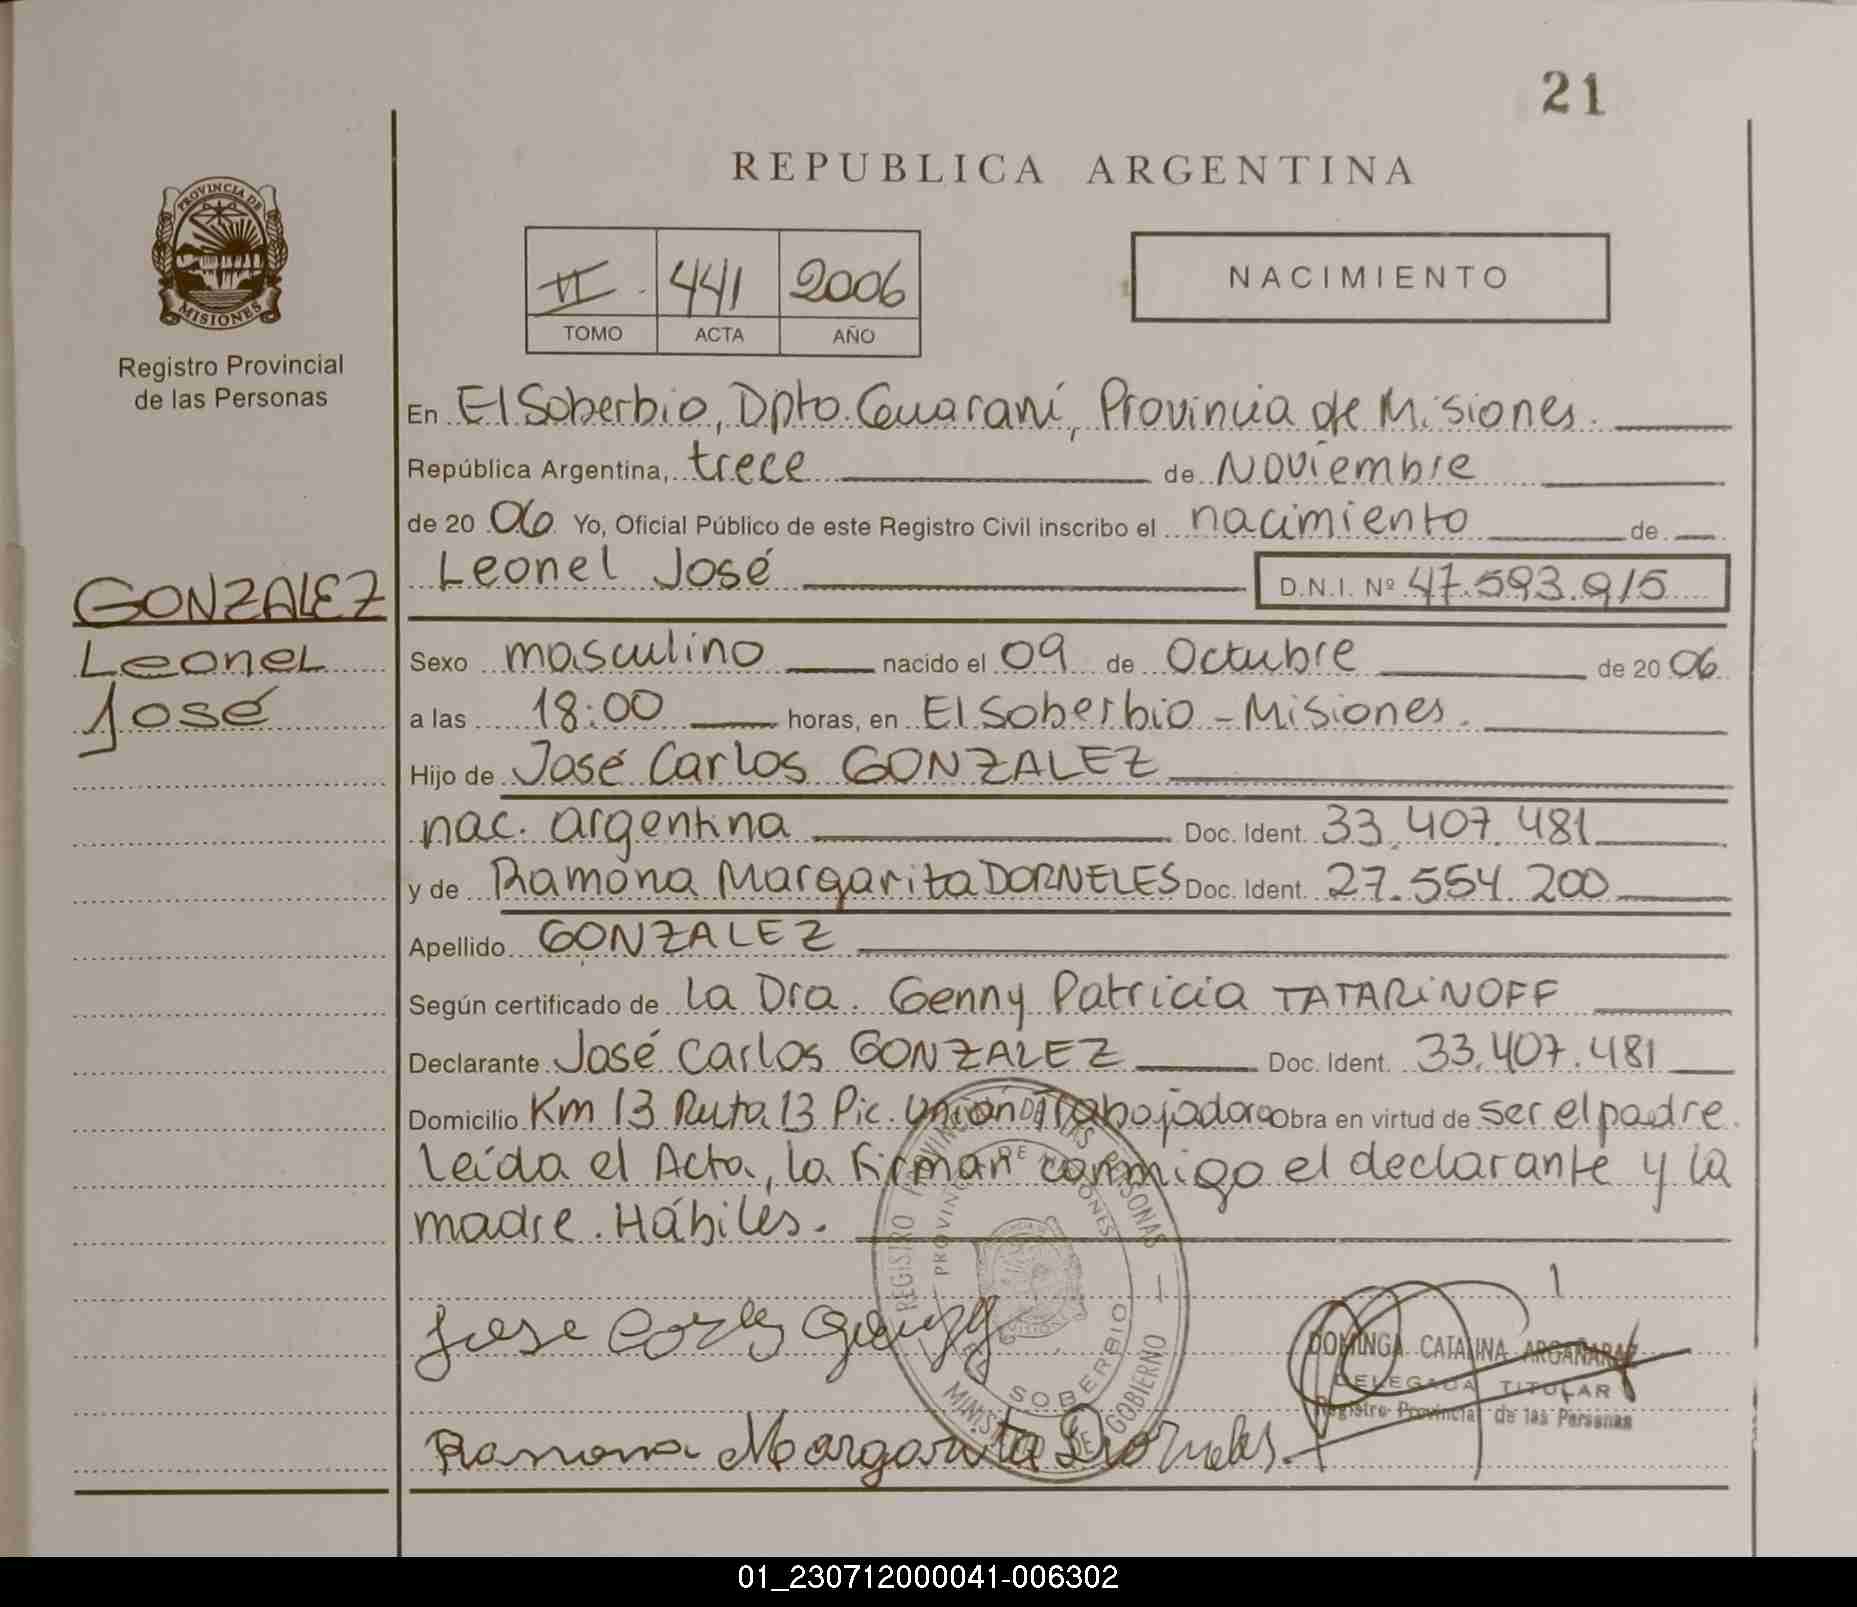 21
REPUBLICA ARGENTINA
PROVINCIA DE
MISIONES
Registro Provincial
de las Personas
II. 441 2006
TOMO ACTA AÑO
NACIMIENTO
En El Soberbio, Dpto. Guaraní, Provincia de Misiones.
República Argentina, trece de Noviembre
de 20 06 Yo, Oficial Público de este Registro Civil inscribo el nacimiento de
Leonel José D.N.I. Nº 47.593.915
GONZALEZ
Leonel
José
Sexo masculino nacido el 09 de Octubre de 20 06
a las 18:00 horas, en El Soberbio - Misiones.
Hijo de José Carlos GONZALEZ
nac. argentina Doc. Ident. 33.407.481
y de Ramona Margarita DORNELES Doc. Ident. 27.554.200
Apellido GONZALEZ
Según certificado de la Dra. Genny Patricia TATARINOFF
Declarante José Carlos GONZALEZ Doc. Ident. 33.407.481
Domicilio Km 13 Ruta 13 Pic. Unión Trabajadora Obra en virtud de ser el padre.
Leída el Acta, la firman conmigo el declarante y la
madre. Hábiles.
REGISTRO PROVINCIAL DE LAS PERSONAS
PROVINCIA DE MISIONES
SOBERBIO
MINISTERIO DE GOBIERNO
Jose Carlos
Ramona Margarita Dorneles.
DOMINGA CATALINA ARGAÑARAZ
DELEGADA TITULAR
Registro Provincial de las Personas
01_230712000041-006302